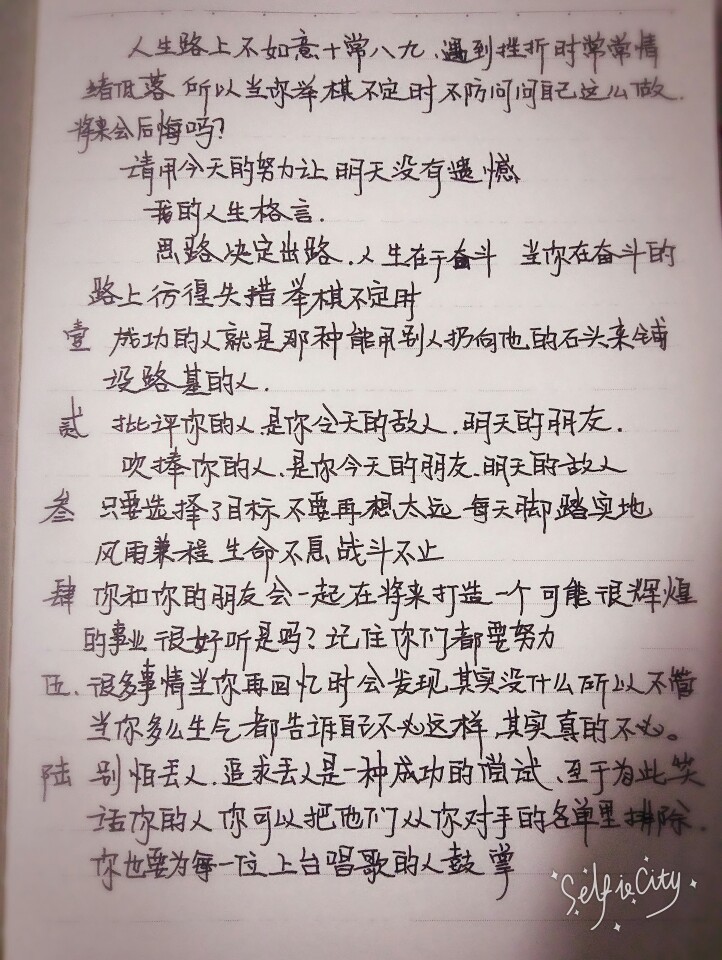 人生路上不如意十常八九.遇到挫折时常常情
绪低落 所以当你举棋不定时不防问问自己这么做.
将来会后悔吗?
请用今天的努力让明天没有遗憾
我的人生格言.
思路决定出路.人生在于奋斗 当你在奋斗的
路上彷徨失措举棋不定时
壹 成功的人就是那种能用别人扔向他的石头来铺
设路基的人.
贰 批评你的人.是你今天的敌人.明天的朋友.
吹捧你的人.是你今天的朋友.明天的敌人
叁 只要选择了目标不要再想太远 每天脚踏实地
风雨兼程 生命不息战斗不止
肆 你和你的朋友会一起在将来打造一个可能很辉煌
的事业 很好听是吗?记住你们都要努力
伍.很多事情当你再回忆时会发现其实没什么所以不管
当你多么生气都告诉自己不必这样,其实真的不必。
陆 别怕丢人.追求丢人是一种成功的尝试、至于为此笑
话你的人你可以把他们从你对手的名单里排除.
你也要为每一位上台唱歌的人鼓掌
SelfieCity